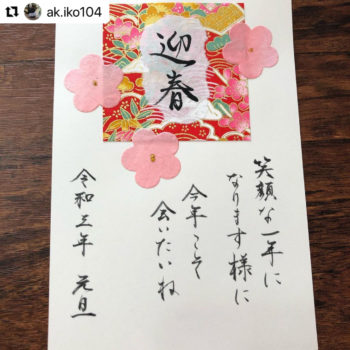 ak.iko104
迎春
笑顔な一年に
なります様に
今年こそ
会いたいね
令和三年 元旦